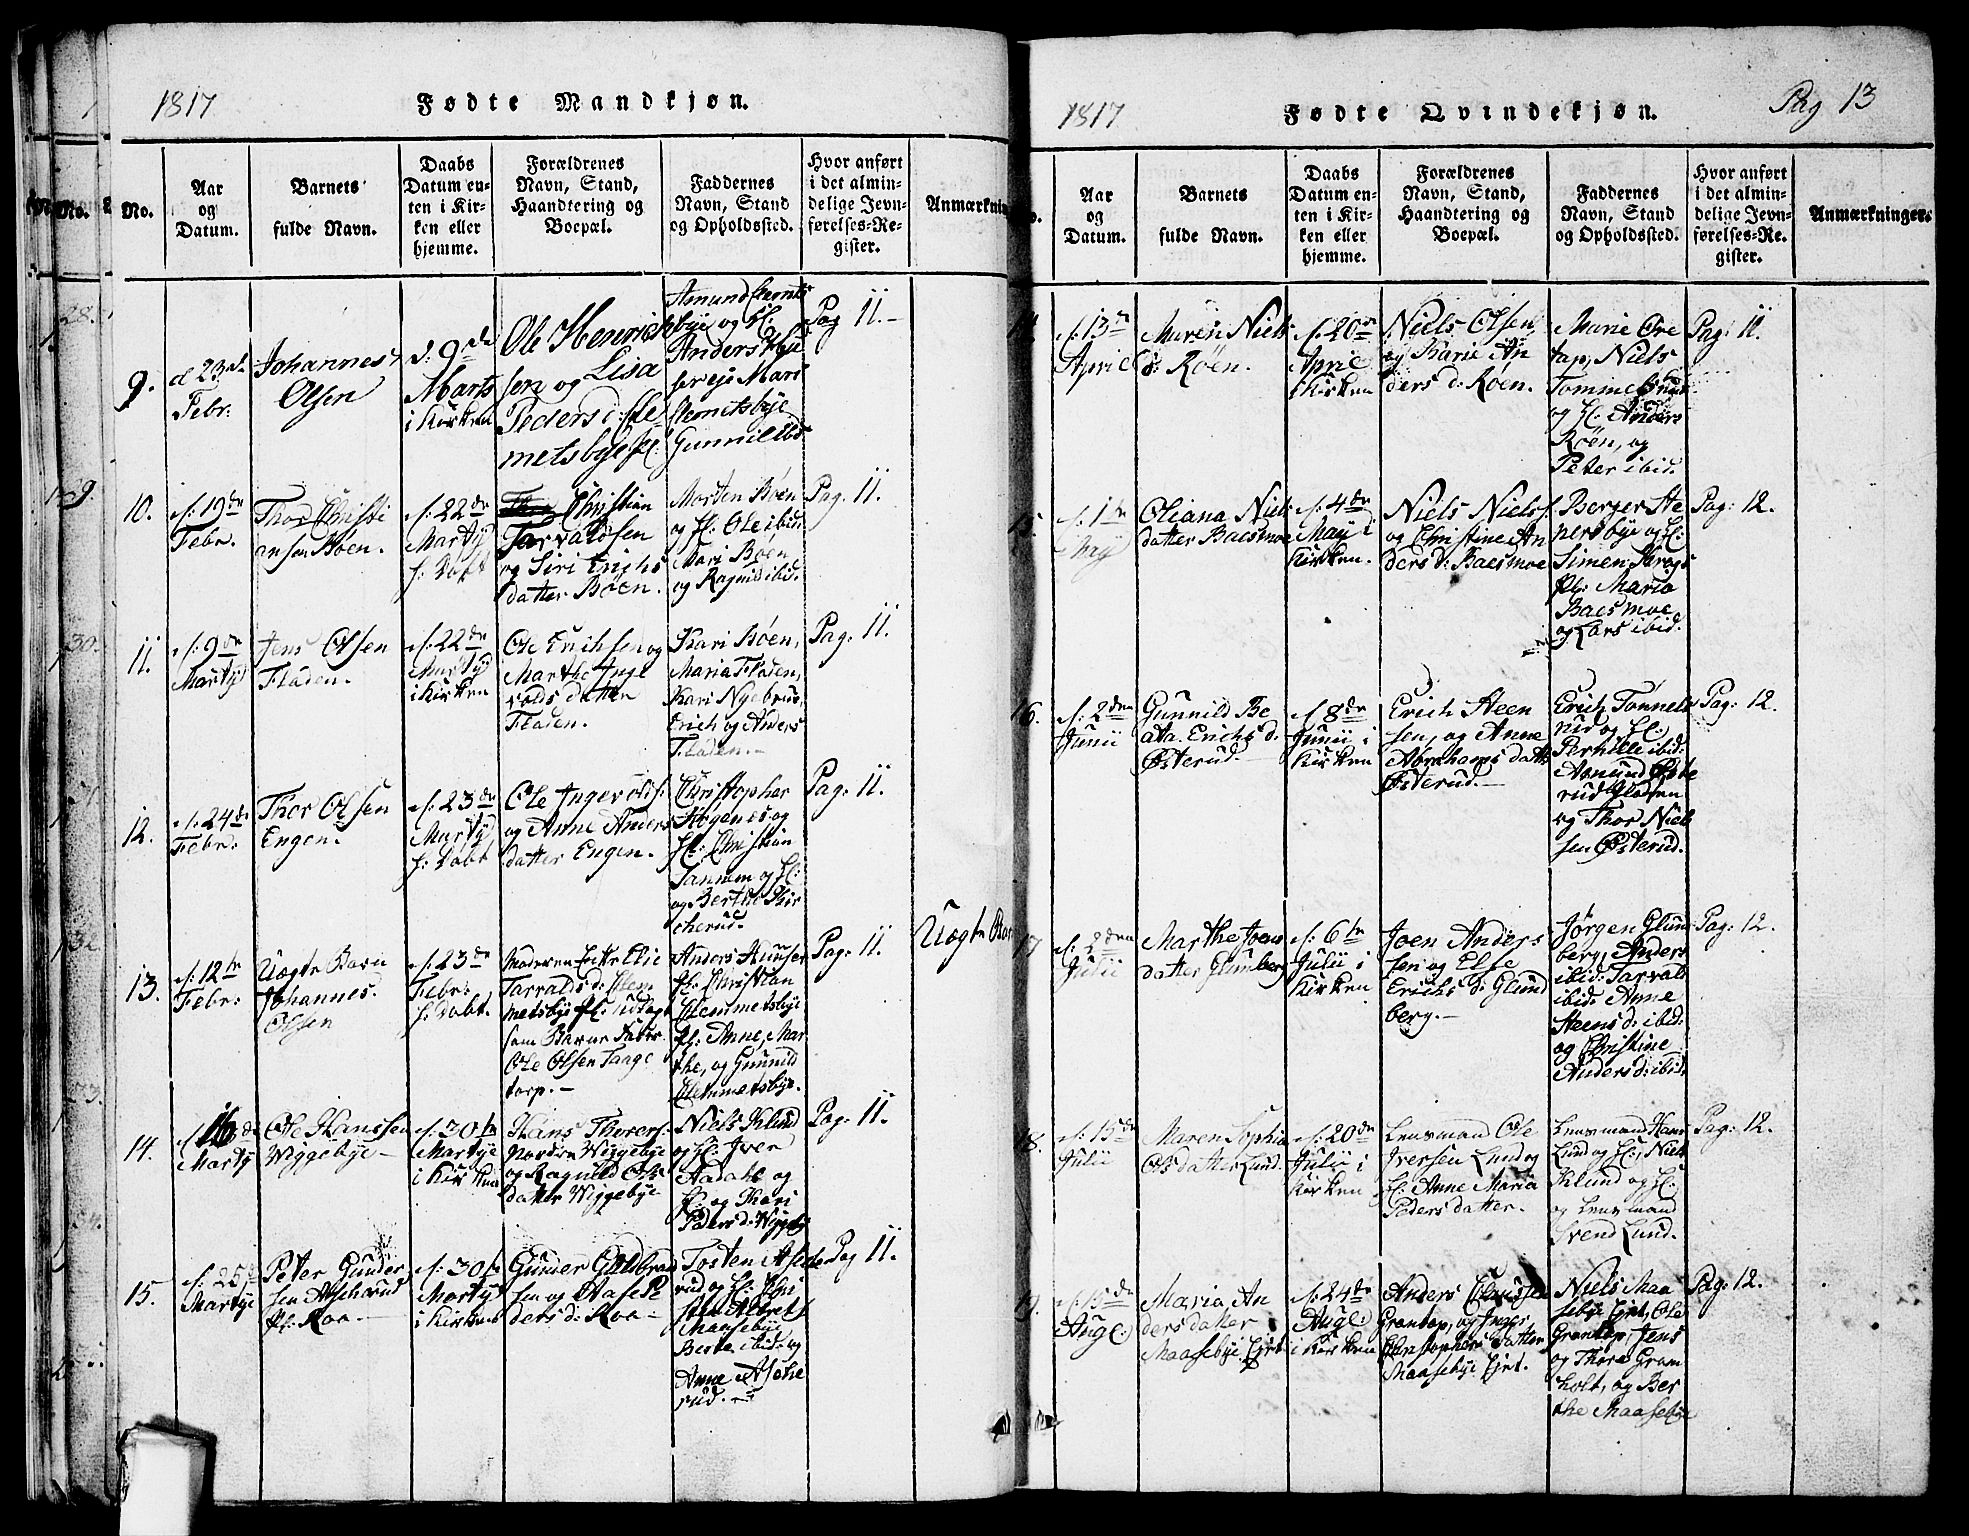 1817
Fødte Mandkjøn.
No.
Aar
og
Datum.
Barnets
fulde Navn.
Daabs
Datum en-
ten i Kir-
ken eller
hjemme.
Forældrenes
Navn, Stand,
Haandtering og
Boepæl.
Faddernes
Navn, Stand
og Opholdssted.
Hvor anført
i det almin-
delige Jevn-
førelses-Re-
gister.
Anmærkning
9.
d 23de
Febr:
Johannes
Olsen
d: 9de
Marts
i Kirken
Ole Henrich
sen og Lisa
Peders d: Cle
metsbye
Amund Clemets
bye og
Anders
Mari
Clemetsbye
Gunnild ibd
Pag 11.
10.
d: 19de
Febr.
Thor Christi
ansen Böen.
d: 22de
Marty
h: Døbt
Christian
Tarvaldsen
og Siri Erichs
datter Böen.
Morten Böen
og Ole ibid:
Mari Böen,
og Ragnild ibid.
Pag: 11.
11.
d: 9de
Marty
Jens Olsen
Fladen.
d: 22de
Marty
i Kirken
Ole Erichsen og
Marthe Inge
valds datter
Fladen.
Kari Böen,
Maria Fladen,
Kari Nyebrus,
Erich og Anders
Fladen.
Pag: 11.
12.
d: 24de
Febr:
Thor Olsen
Engen.
d: 23de
Marty
h: Dobt
Ole Ingevolds:
og Anne Anders
datter Engen.
Christopher
Christian
og Berthe Kir
cherud.
Pag: 11.
13.
d: 12te
Febr:
Uægte Barn
Johannes
Olsen
d: 23de
Febr:
h: Dobt.
Moderen Elie
Tarvalds d: Clem
metsbye udlagt
som Barne Fader
Ole Olsen Taage
torp.
Anders
Christian
Clemmetsbye
Anne, Mar
the, og Gunnild
Clemmetsbye.
Pag: 11.
Uægte Bar
14.
d 16de
Marty
Ole Hanssen
Wiggebye
d: 30te
Martye
i Kirken
Hans Thorers:
Wiggebye
og Ragnild Ols
datter Wiggebye
Niels Klund
og Iver
Aadahl og
og Kari
Peders d: Wiggeby
Pag: 11.
15.
d: 25de
Martye
Peter Gunder
sen
Roa
d: 30te
Martye
i Kirken
Gunder Guldbrand
sen og Aase P
ders d: Roa
Tosten
rud og
Maasebye
Berte ibid: og
Anne
rud.
Pag 11.
1817
Fødte Qvindekjøn.
Pag 13
Aar
og
Datum.
Barnets
fulde Navn.
Daabs
Datum en-
ten i Kir-
ken eller
hjemme.
Forældrenes
Navn, Stand,
Haandtering og
Boepæl.
Faddernes
Navn, Stand
og Opholdssted.
Hvor anført
i det almin-
delige Jevn-
førelses-Re-
gister.
Anmærkninger.
14.
d: 13de
April
Maren Niels
d: Röen.
d: 20de
April
i Kirken
Niels Olsen,
og Karie An
ders d: Röen.
Marie
Niels
og Anders
Röen, og
Peter ibid.
Pag: 11.
15.
d: 1de
May
Oliana Niels
datter Baesmoe
d: 4de
May i
Kirken.
Niels Nielss
og Christine An
ders d: Baesmoe
Berger Ste
persbye og
Simen
Maria
Baesmoe
og Lars ibid:
Pag: 12.
16.
d: 2den
Junii
Gunnild Be
ata. Erichs d:
Østerud.
d 8de
Junii i
Kirken
Erich Steen
sen, og Anne
Abrahams datt:
Østerud.
Erich Tonnels
rud og
Pernille ibid:
Amund Øste
rud
og Thor Niel
sen Østerud.
Pag: 12.
17
d: 2den
Julii
Marthe Joens
datter Glumberg
d: 6te
Julii i
Kirken
Joen Anders
sen og Else
Erichs d: Glund
berg.
Jørgen Glun
berg, Anders
ibid: Tarvald
ibid: Anne
Steens d: ibid:
og Christine
Anders d: ibid.
Pag: 12.
18.
d: 15de
Julii
Maren Sophia
Ols datter Lund.
d: 20de
Julii i
Kirken
Lensmand Ole
Iversen Lund og
Anne Maria
Peders datter.
Lensmand Hans
Lund og Niels
Klund og
og Lensmand
Svend Lund.
Pag: 12.
19.
d: 15de
Aug:
Maria An
ders datter
Maasebye Ejet
d: 24de
Aug:
i Kirken
Anders Clausen
Grantop, og Inger
Christophers datter
Maasebye Ejet.
Niels Maa
sebye Ejet, Ole
Grantop, Jens
og Thore Gram
holt, og Ber
the Maasebye
Pag: 12.